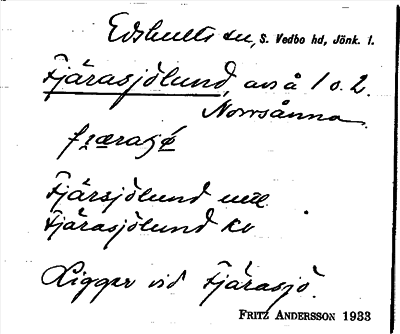 Edshults sn, S. Vedbo hd, Jönk. l.
Fjärasjölund, avs å 1 o. 2.
Norrsånna
fjærasjø
Fjärsjölund
Fjärasjölund kv
Ligger vid Fjärasjö.
FRITZ ANDERSSON 1933